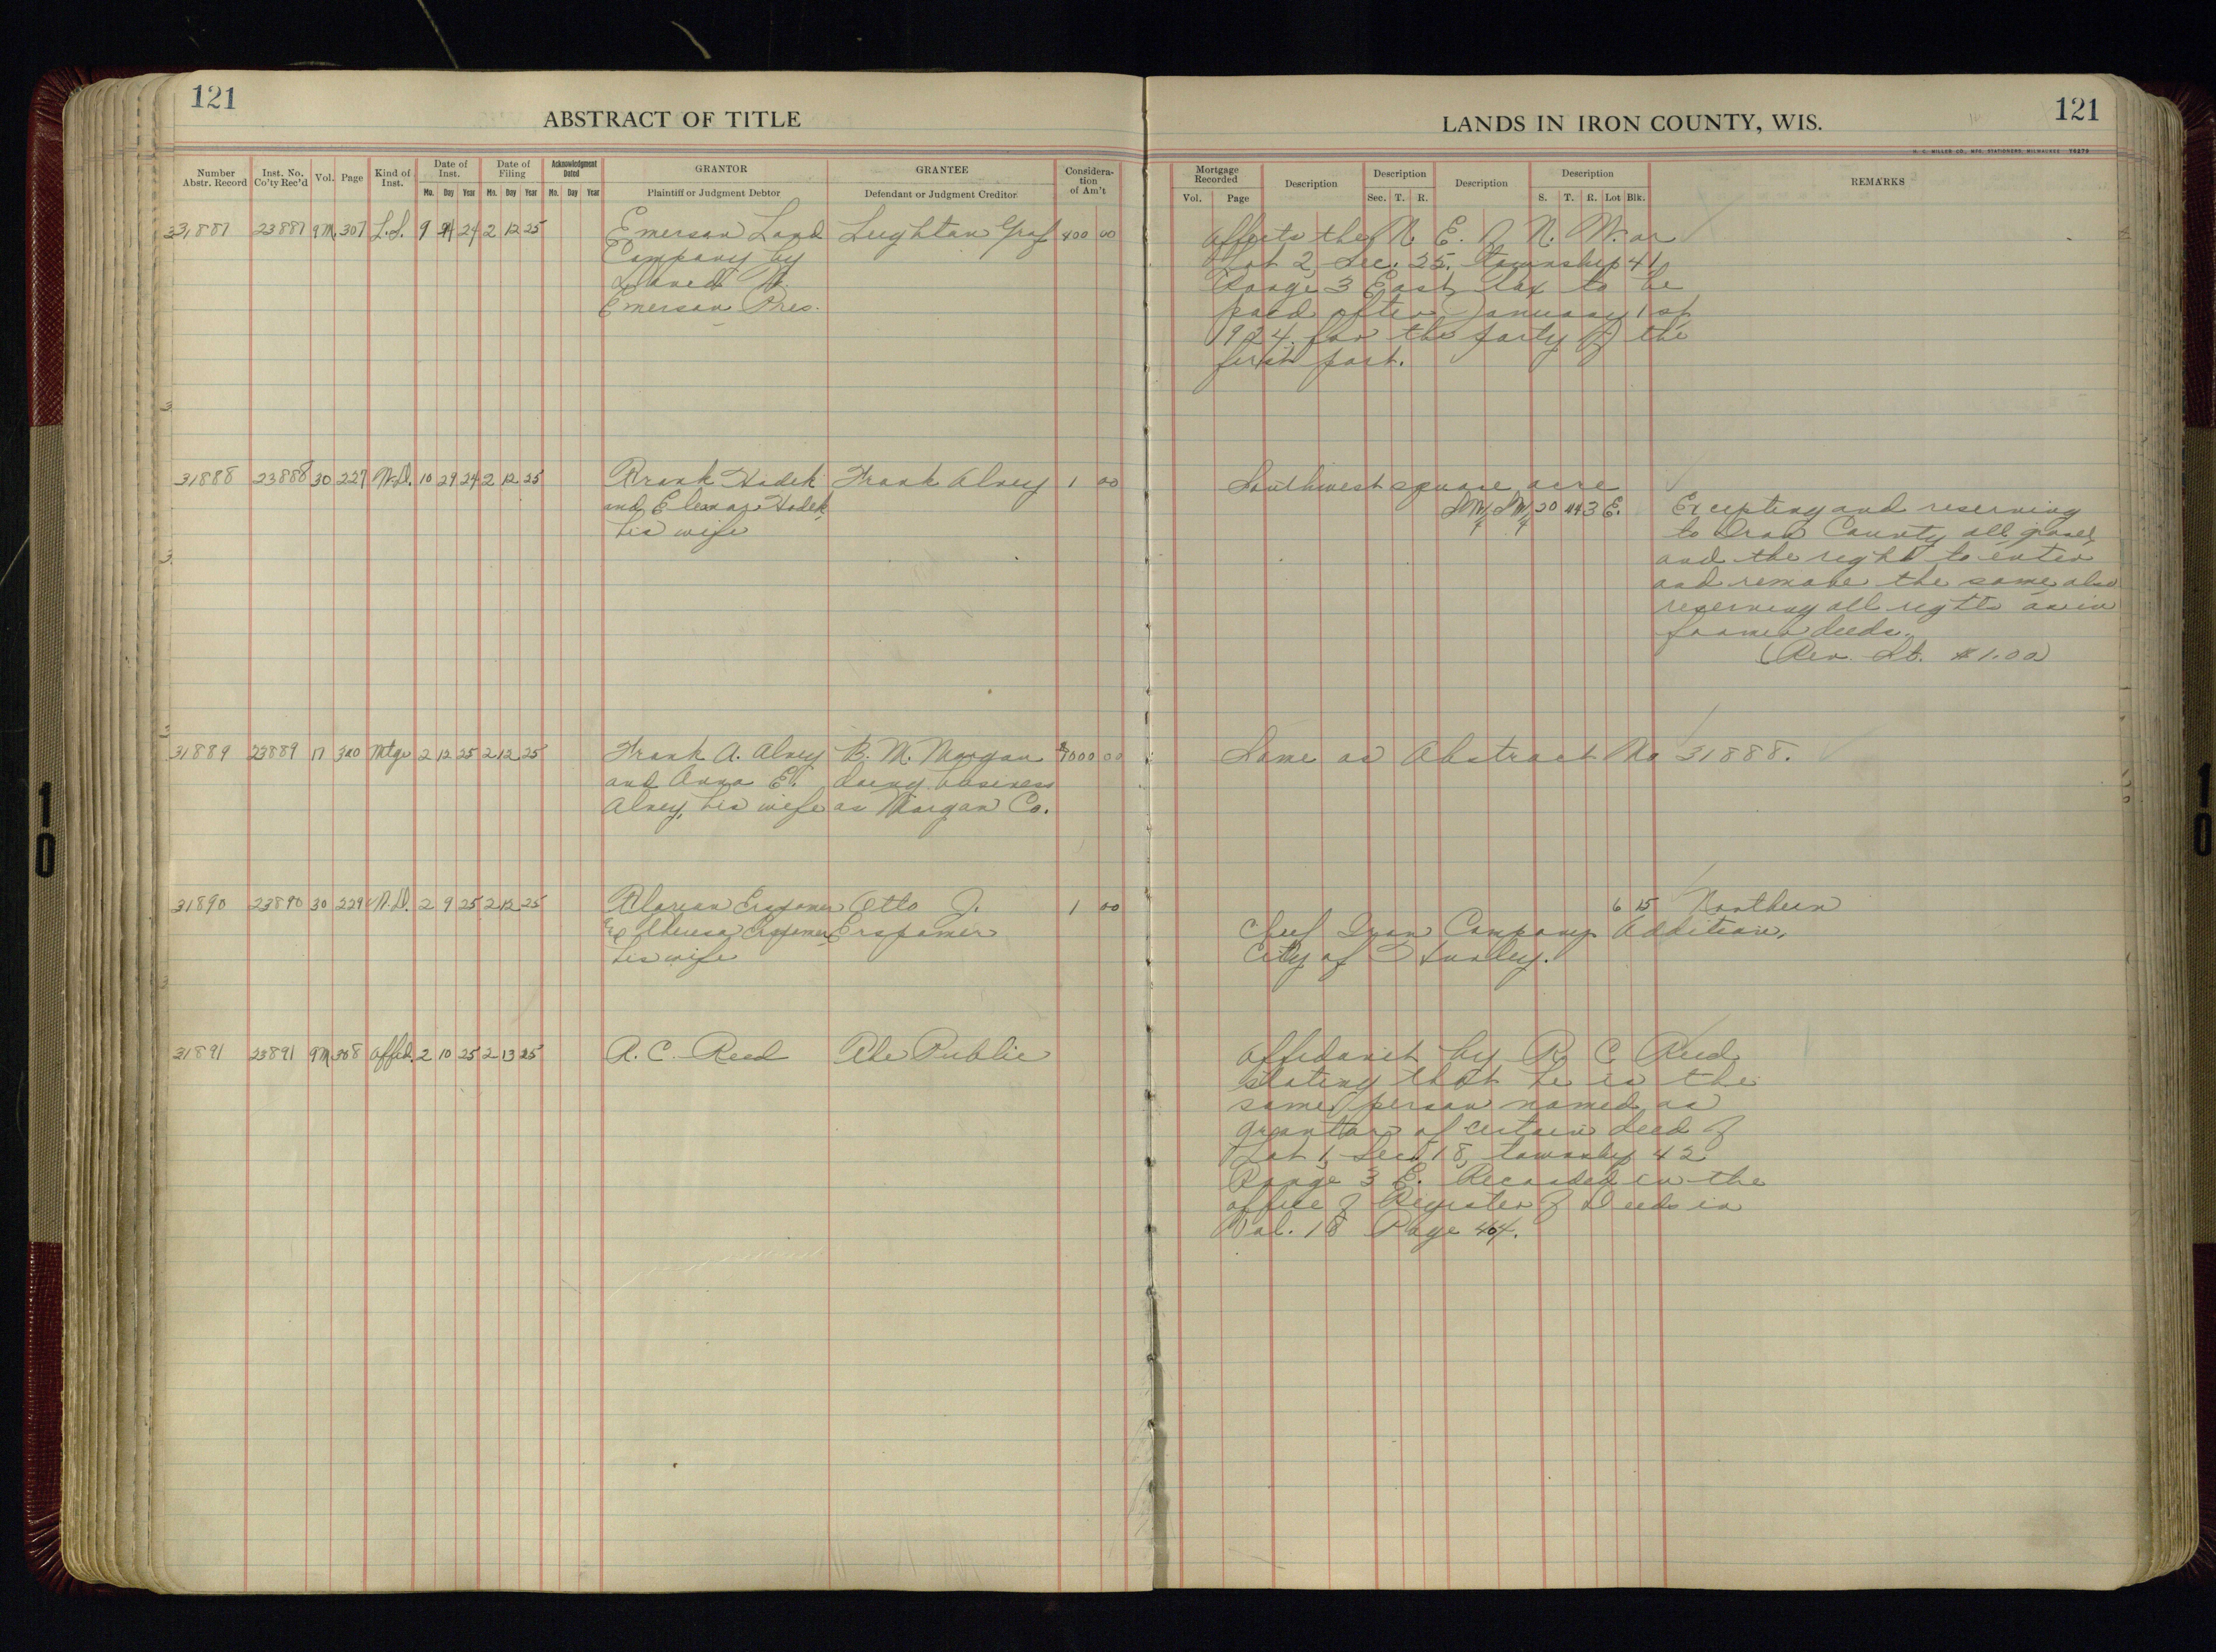 121
ABSTRACT OF TITLE
LANDS IN IRON COUNTY, WIS.
121
H. C. MILLER CO., MFG. STATIONERS, MILWAUKEE
Number Abstr. Record
Inst. No. Co'ty Rec'd
Vol.
Page
Kind of Inst.
Date of Inst.
Mo. Day Year
Date of Filing
Mo. Day Year
Acknowledgment Dated
Mo. Day Year
GRANTOR
Plaintiff or Judgment Debtor
GRANTEE
Defendant or Judgment Creditor
Consideration of Am't
Mortgage Recorded
Vol. Page
Description
Description
Sec. T. R.
Description
Description
S. T. R. Lot Blk.
REMARKS
31887 23887 9M 307 L.S. 9 24 24 2 12 25 Emerson Land Leighton Graf 400 00
Company by
Emerson Pres.
Affects the N. E. of N. W. or
Lot 2, Sec. 25, township 41,
Range 3 East, tax to be
paid after January 1st,
1924, for the party of the
first part.
31888 23888 30 227 W.D. 10 29 24 2 12 25 Frank Hadek Frank Alney 1 00
and Eleanor Hadek,
his wife
Southwest square acre
SW/4 SW/4 20 44 3 E.
Excepting and reserving
to Iron County all gravel
and the right to enter
and remove the same, also
reserving all rights as in
former deeds.
(Rev. St. $1.00)
31889 23889 17 320 Mtge 2 12 25 2 12 25 Frank A. Alney B. M. Morgan 00
and Anna E. doing business
Alney, his wife as Morgan Co.
Same as Abstract No 31888.
31890 23890 30 229 W.D. 2 9 25 2 12 25 Erspamer Otto J. 1 00
Theresa Erspamer, Erspamer
his wife
6 15 Northern
Chief Iron Company Addition,
City of Hurley.
31891 23891 9M 308 Affid. 2 10 25 2 13 25 R. C. Reed The Public
Affidavit by R. C. Reed,
stating that he is the
same person named as
grantor of certain deed of
Lot 1, Sec. 18, township 42
Range 3 E. Recorded in the
office of Register of Deeds in
Vol. 18 Page 404.
10
10